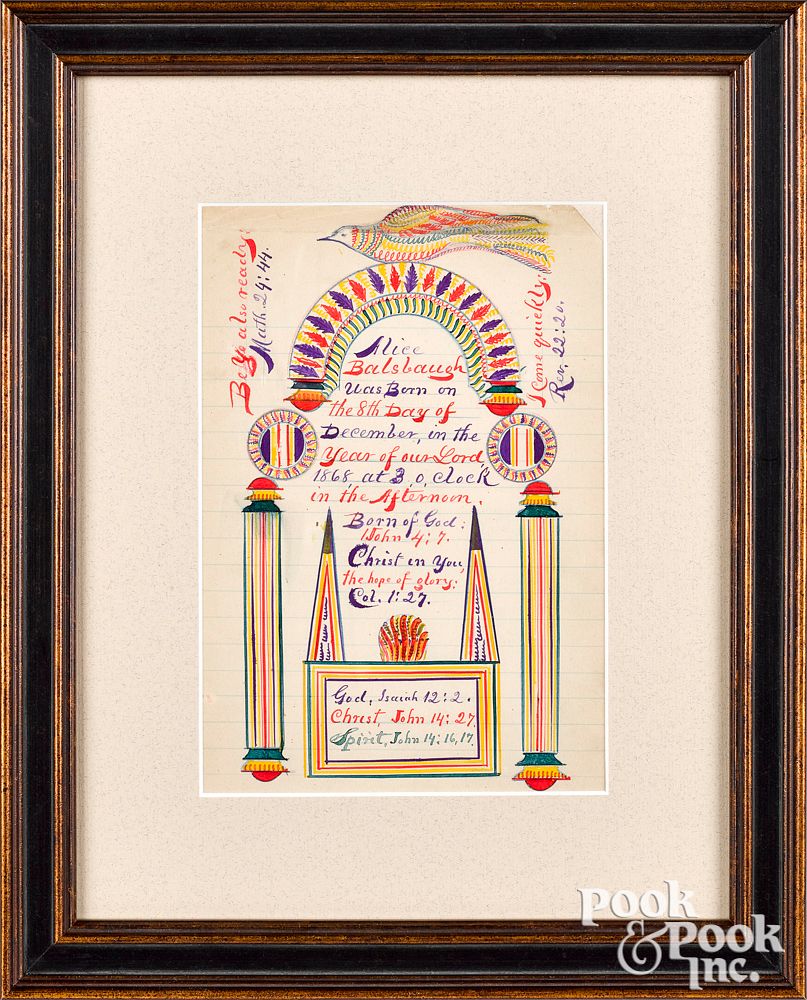 Be Ye also ready:
Math. 24: 44.
I Come quickly:
Rev. 22: 20.
Alice
Balsbaugh
Was Born on
the 8th Day of
December, in the
Year of our Lord,
1868, at 3, o, clock
in the Afternoon.
Born of God:
1 John 4: 7.
Christ in You,
the hope of glory:
Col. 1: 27.
God, Isaiah 12: 2.
Christ, John 14: 27.
Spirit, John 14: 16, 17.
POOK
& POOK
INC.